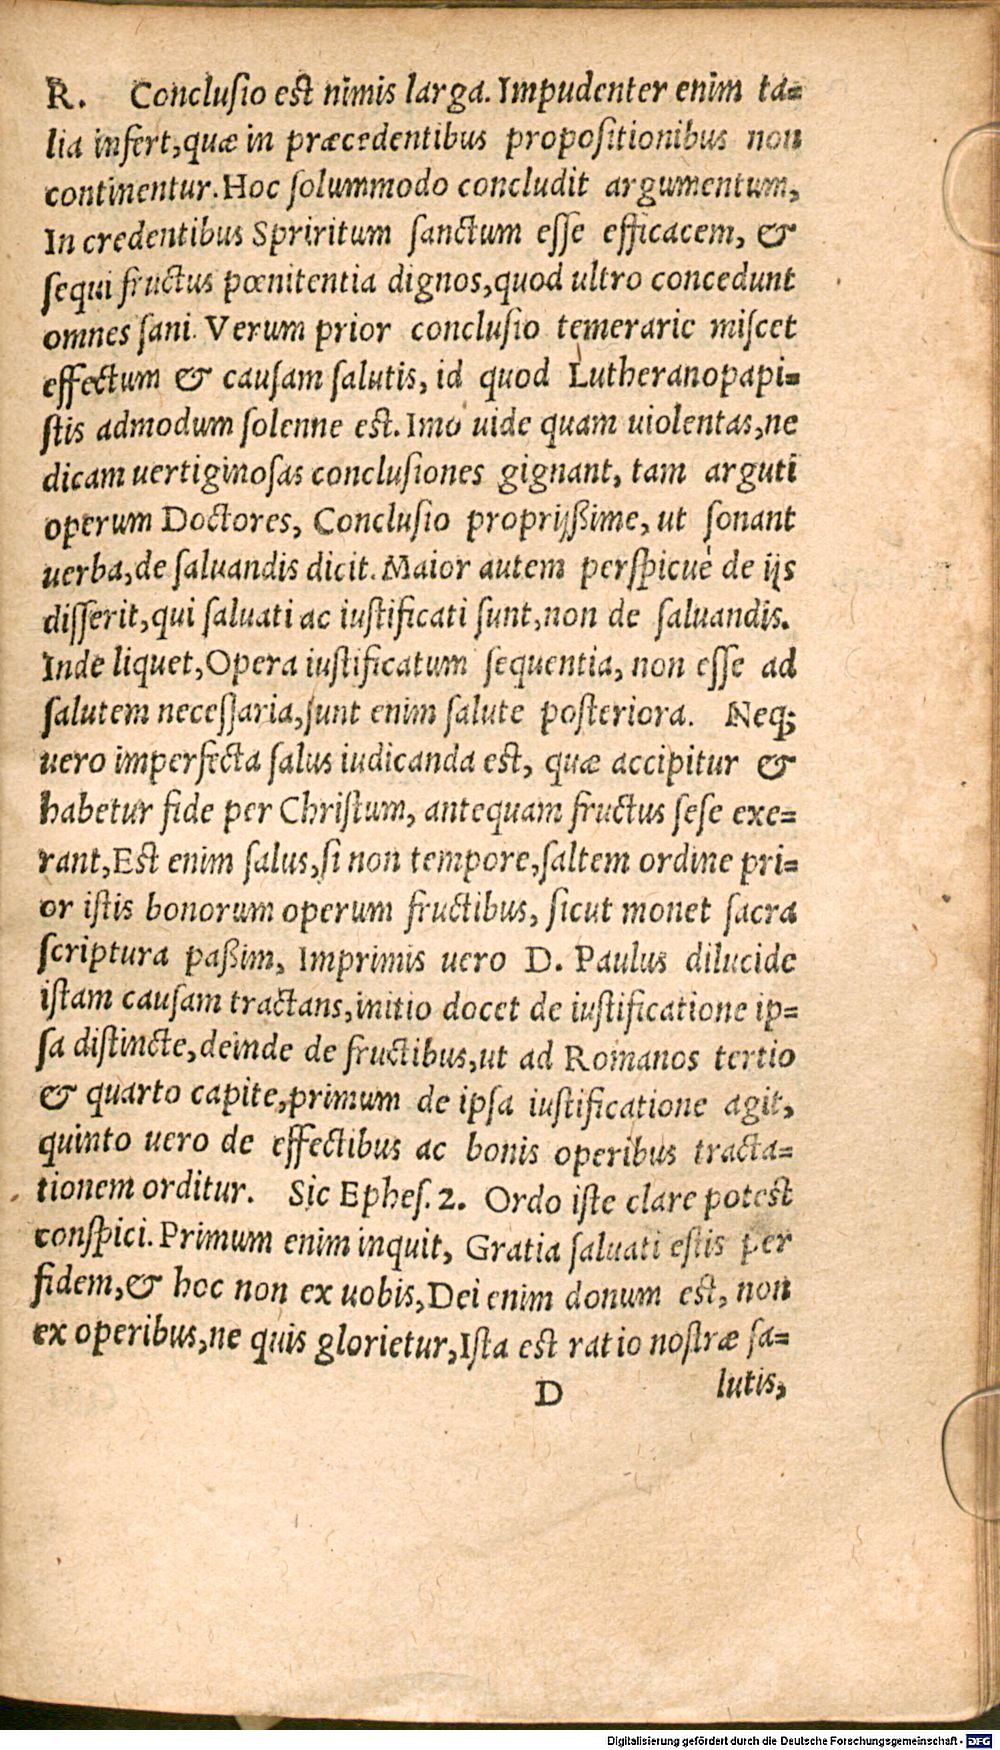 R. Concluſio eſt nimis larga. Impudenter enim ta=
lia infert, quæ in præcedentibus propoſitionibus non
continentur. Hoc ſolummodo concludit argumentum,
In credentibus Spriritum ſanctum eſſe efficacem, &
ſequi fructus pœnitentia dignos, quod ultro concedunt
omnes ſani. Verum prior concluſio temerarie miſcet
effectum & cauſam ſalutis, id quod Lutheranopapi=
ſtis admodum ſolenne eſt. Imo uide quam uiolentas, ne
dicam vertiginoſas concluſiones gignant, tam arguti
operum Doctores, Concluſio proprijßime, ut ſonant
uerba, de ſaluandis dicit. Maior autem perſpicuè de ijs
diſſerit, qui ſaluati ac iuſtificati ſunt, non de ſaluandis.
Inde liquet, Opera iuſtificatum ſequentia, non eſſe ad
ſalutem neceſſaria, ſunt enim ſalute poſteriora. Neq;
uero imperfecta ſalus iudicanda eſt, quæ accipitur &
habetur fide per Chriſtum, antequam fructus ſeſe exe=
rant, Eſt enim ſalus, ſi non tempore, ſaltem ordine pri=
or iſtis bonorum operum fructibus, ſicut monet ſacra
ſcriptura paßim, Imprimis uero D. Paulus dilucide
iſtam cauſam tractans, initio docet de iuſtificatione ip=
ſa diſtincte, deinde de fructibus, ut ad Romanos tertio
& quarto capite, primum de ipſa iuſtificatione agit,
quinto uero de effectibus ac bonis operibus tracta=
tionem orditur. Sic Epheſ. 2. Ordo iſte clare poteſt
conſpici. Primum enim inquit, Gratia ſaluati eſtis per
fidem, & hoc non ex uobis, Dei enim donum eſt, non
ex operibus, ne quis glorietur, Iſta eſt ratio noſtræ ſa=
D lutis,
Digitalisierung gefördert durch die Deutsche Forschungsgemeinschaft - DFG